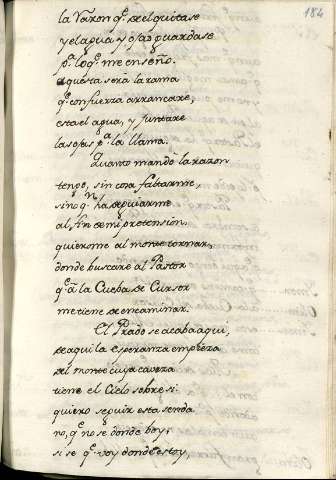 184
la Varon q.e del quitase
y el agua y ojas guardase
p.a lo q.e me enseño.
aquesta sera la rama
q.e con fuerza arrancaré,
esta el agua, y juntaré
las ojas p.a la llama.
Quanto mandò la razon
tengo, sin cosa faltarme,
sino q.n ha de guiarme
al fin de mi pretension.
quierome al monte tornar,
donde buscaré al Pastor
q.e à la Cueba de Cursor
me tiene de encaminar.
El Prado se acaba aqui,
de aqui la esperanza empieza
del monte cuya caveza
tiene el Cielo sobre si.
quiero seguir esta senda
no, q.e no se donde boy,
si se q.e voy donde estoy,